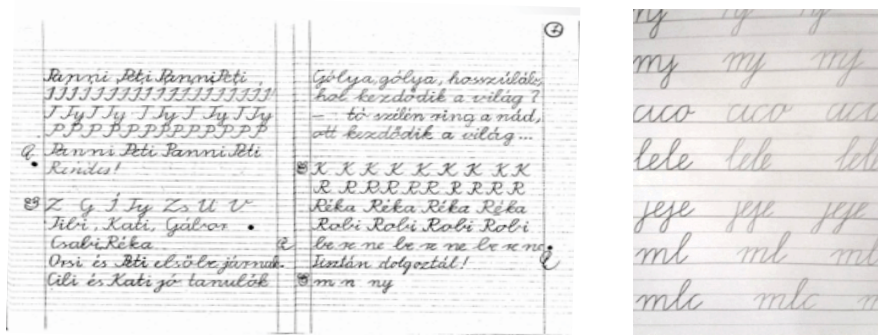 Panni Peti Panni Peti
J J J J J J J J J J J J J J J J J J
T Ty T Ty T Ty T Ty T Ty
P P P P P P P P P P P P
Panni Peti Panni Peti
Rendes!
Z G Í Ty Zs U V
Tibi, Kati, Gábor
Csabi, Réka
Orsi és Peti elsőbe járnak.
Cili és Kati jó tanulók
Gólya, gólya, hosszúlábú,
hol kezdődik a világ?
– tó szélén ring a nád,
ott kezdődik a világ...
K K K K K K K K K
R R R R R R R R R
Réka Réka Réka Réka
Robi Robi Robi Robi
be re ne be re ne be re ne
Tisztán dolgoztál!
m n ny
nj nj nj
mj mj mj
cico cico cico
lele lele lele
jeje jeje jeje
ml ml ml
mlc mlc m